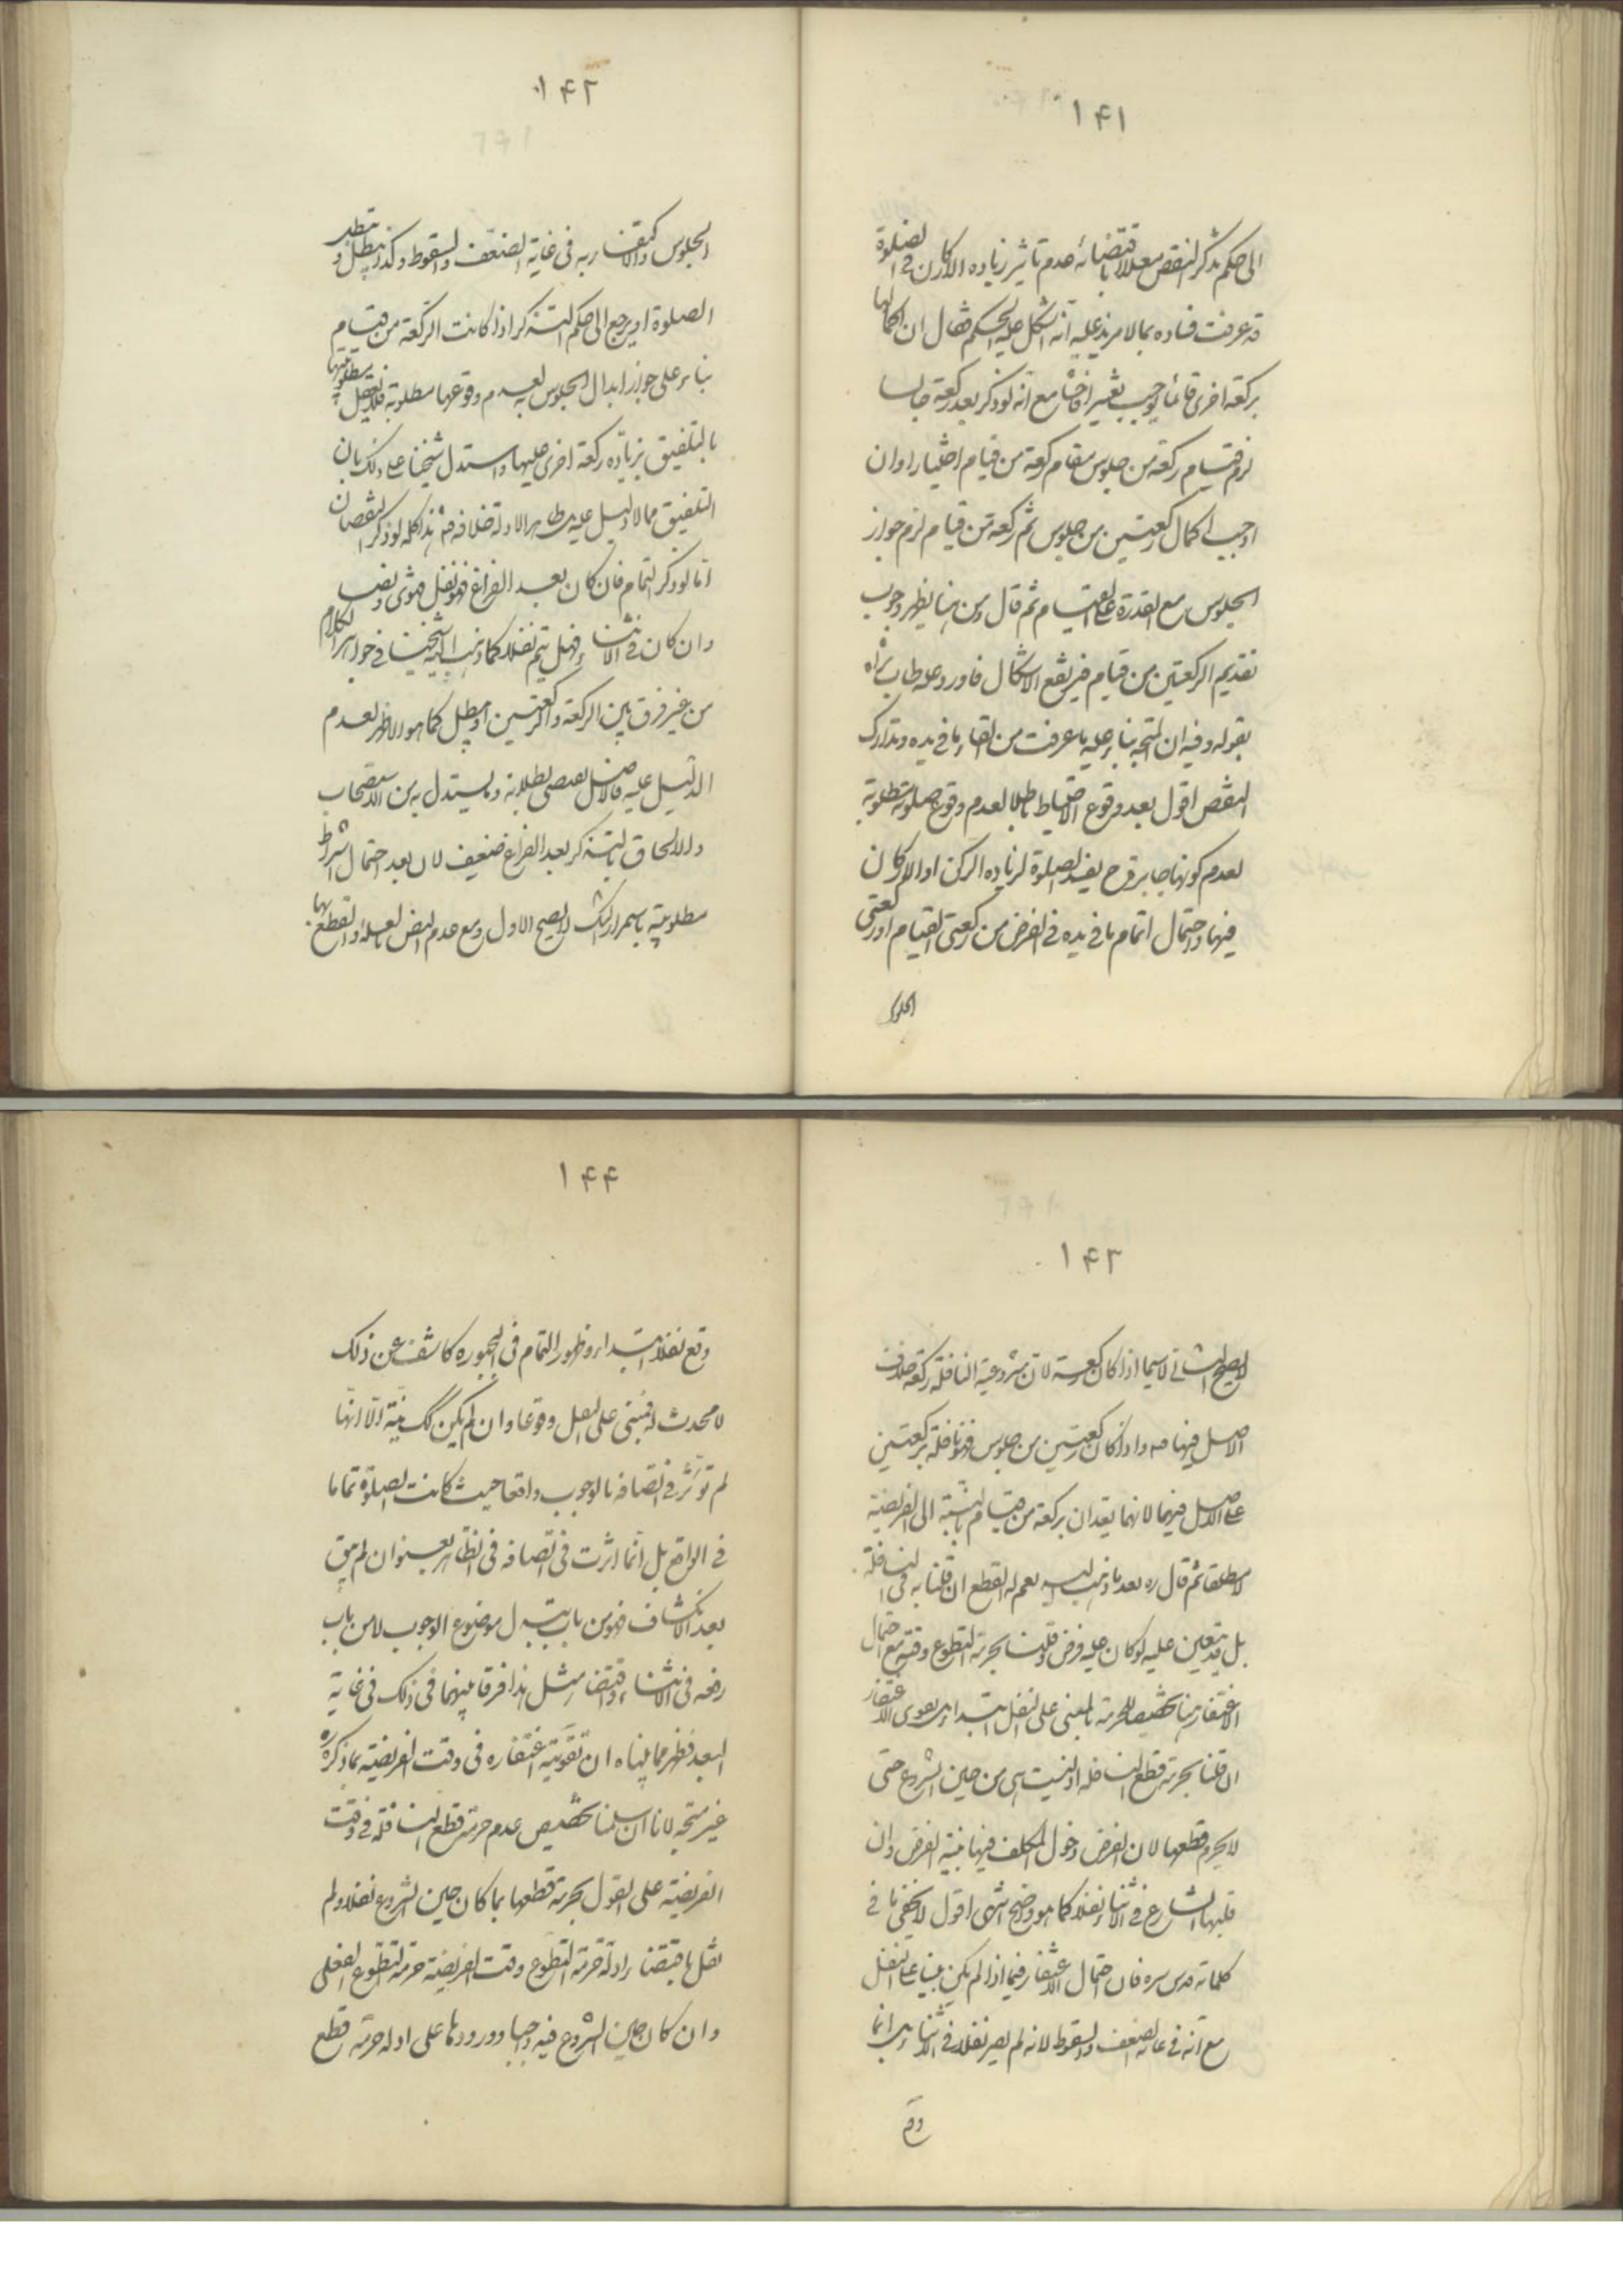 ۱۴۱
الى حكم تذكر النقص معللا باقتضائه عدم تاثير زياده الاركان فى الصلوة
قد عرفت فساده بما لا مزيد عليه انه اشكل عليه الحكم فقال ان اكمالها
بركعة اخرى قائما يوجب تغييرا فاحشا مع انه لو ذكر بعد ركعة جالسا
لزم قيام ركعة من جلوس مقام ركعة من قيام اختيارا وان
اوجب اكمال ركعتين من جلوس ثم ركعة من قيام لزم جواز
الجلوس مع القدرة على القيام ثم قال ومن هنا يظهر وجوب
تقديم الركعتين من قيام فيرتفع الاشكال فاورد عليه طاب ثراه
بقوله وفيه ان المتجه بناء عليه ما عرفت من الغاء ما فى يده وتدارك
النقص اقول بعد وقوع الاحتياط باطلا لعدم وقوع صلوته مطلوبة
لعدم كونها جابرة ح يفسد الصلوة لزيادة الركن او الاركان
فيها واحتمال اتمام ما فى يده فى الفرض من ركعتى القيام او ركعتى
الجلوس
۱۴۲
الجلوس كالاقتصار به فى غاية الضعف والسقوط وكذا يبطل و
الصلوة او يرجع الى حكم التذكر اذا كانت الركعة من قيام
بناء على جواز ابدال الجلوس به لعدم وقوعها مطلوبة فلا
بالتلفيق بزيادة ركعة اخرى عليها واستدل شيخنا على ذلك بان
التلفيق مما لا دليل عليه بل ظاهر الادلة خلافه هذا كله لو ذكر النقصان
اما لو ذكر التمام فان كان بعد الفراغ فهو نفل
وان كان فى الاثناء فهل يتم نفلا كما ذهب اليه شيخنا فى جواهر الكلام
من غير فرق بين الركعة والركعتين او يبطل كما هو الاظهر لعدم
الدليل عليه فالاصل يقتضى بطلانه وما يستدل به من الاستصحاب
والالحاق بالتذكر بعد الفراغ ضعيف لان بعد احتمال اشتراط
مطلوبيته باستمرار الشك لا يصح الاول ومع عدم النص بالعلة او القطع بها
۱۴۳
لا يصح الثانى لا سيما اذا كان ركعة لان مشروعية النافلة ركعة خلاف
الاصل فيها واذا كان ركعتين من جلوس فهو نافلة بركعتين
على الاصل فيهما لانهما يعدان بركعة من قيام بالنسبة الى الفريضة
لا مطلقا ثم قال ره بعد ما ذهب اليه نعم له القطع ان قلنا به فى النافلة
بل قد يتعين عليه لو كان عليه فرض وقلنا بحرمة التطوع وقته مع احتمال
الاغتفار هنا تخصيصا للحرمة بالمبنى على النفل ابتداء بل يقوى الاغتفار
ان قلنا بحرمة قطع النافلة اذ ليست هى من حين الشروع حتى
لا يحرم قطعها لان الفرض دخول المكلف فيها بنية الفرض وان
قلبها الشارع فى الاثناء نفلا كما هو واضح انتهى اقول لا يخفى ما فى
كلماته قدس سره فان احتمال الاغتفار فيما اذا لم يكن مبنيا على النفل
مع انه فى غاية الضعف والسقوط لانه لم يصر نفلا فى الاثناء بل انما
وقع
۱۴۴
وقع نفلا ابتداء وظهور التمام فى الصورة كاشف عن ذلك
لا محدث له فبنى على النفل واقعا وان لم يكن كك نية الا انها
لم تؤثر فى اتصافه بالوجوب واقعا حيث كانت الصلوة تماما
فى الواقع بل انما اثرت فى اتصافه فى الظاهر بعنوان لم يبق
بعد الانكشاف فهو من باب تبدل موضوع الوجوب لا من باب
رفعه فى الاثناء واقتضاء مثل هذا فرقا بينهما فى ذلك فى غاية
البعد فظهر مما بيناه ان تقوية اغتفاره فى وقت الفريضة بما ذكره ره
غير متجه لانا ان سلمنا تخصيص عدم حرمة قطع النافلة فى وقت
الفريضة على القول بحرمة قطعها بما كان حين الشروع نفلا ولم
نقل باقتضاء ادلة حرمة التطوع وقت الفريضة حرمة التطوع الفعلى
وان كان حين الشروع فيه واجبا وورودها على ادلة حرمة قطع